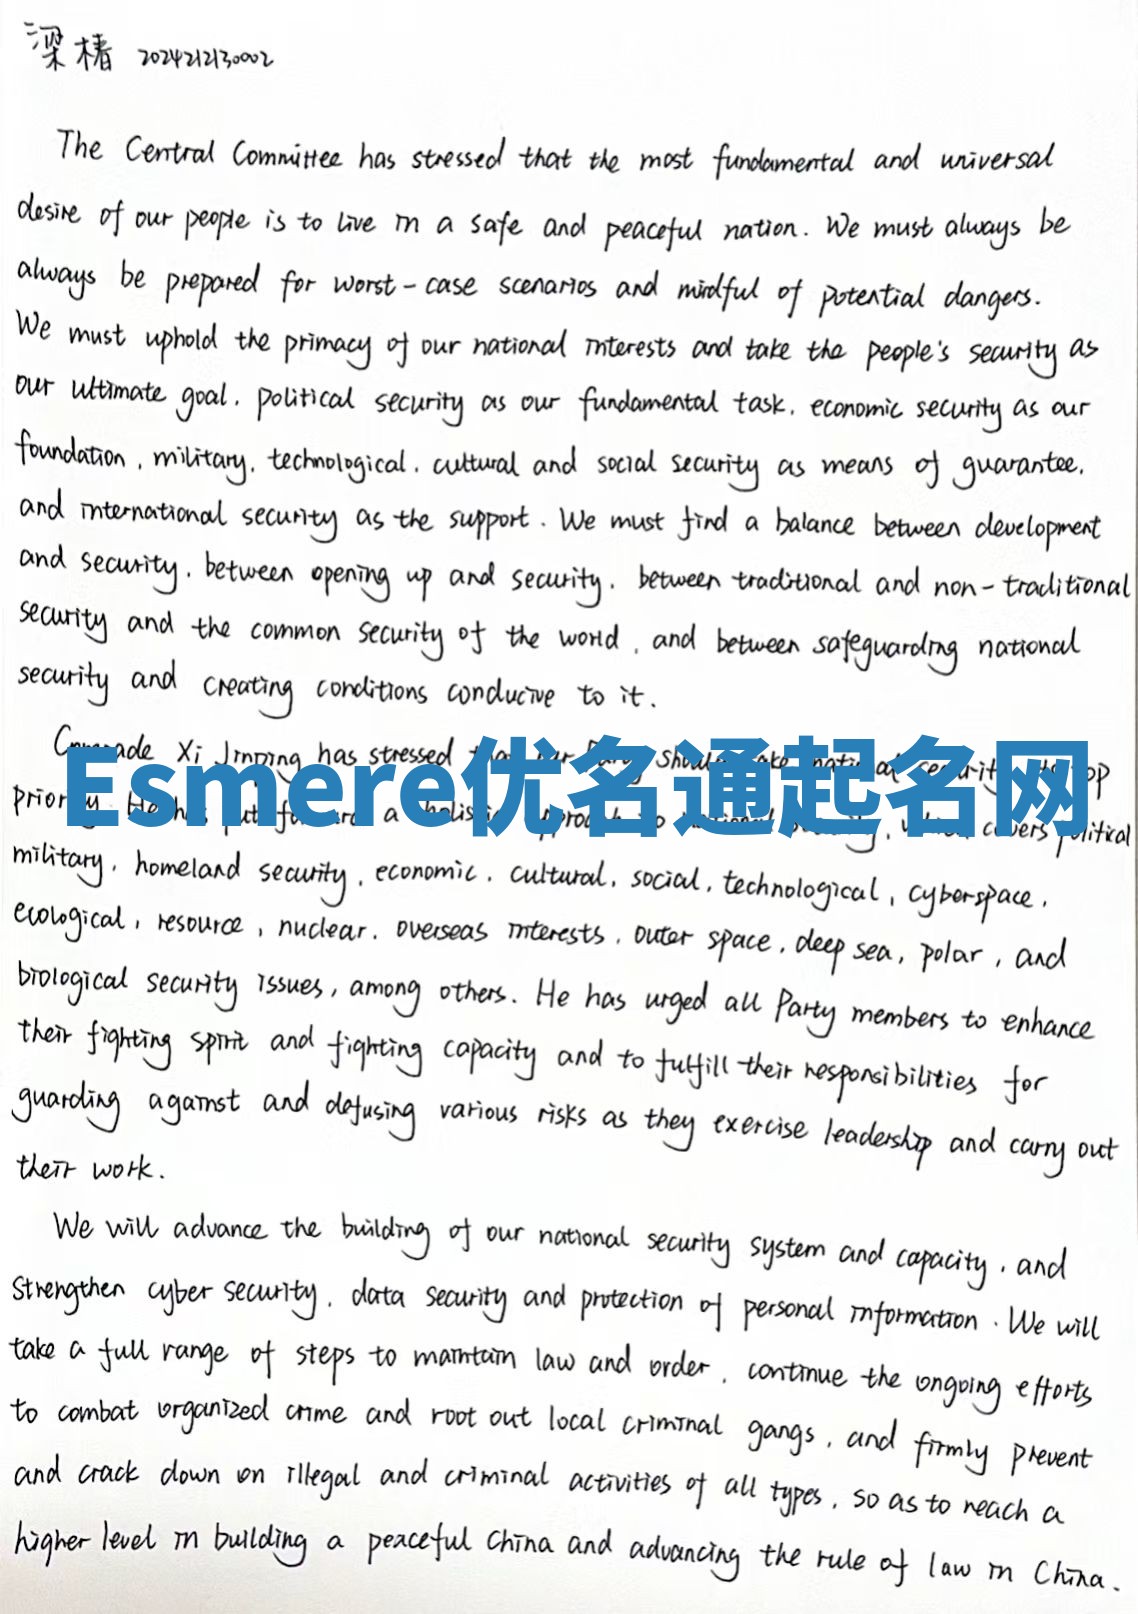 梁椿 2024212130002
The Central Committee has stressed that the most fundamental and universal
desire of our people is to live in a safe and peaceful nation. We must always be
always be prepared for worst-case scenarios and mindful of potential dangers.
We must uphold the primacy of our national interests and take the people's security as
our ultimate goal, political security as our fundamental task, economic security as our
foundation, military, technological, cultural and social security as means of guarantee,
and international security as the support. We must find a balance between development
and security, between opening up and security, between traditional and non-traditional
security and the common security of the world, and between safeguarding national
security and creating conditions conducive to it.
Comrade Xi Jinping has stressed
Esmere优名通起名网
covers political
military, homeland security, economic, cultural, social, technological, cyberspace,
ecological, resource, nuclear, overseas interests, outer space, deep sea, polar, and
biological security issues, among others. He has urged all Party members to enhance
their fighting spirit and fighting capacity and to fulfill their responsibilities for
guarding against and defusing various risks as they exercise leadership and carry out
their work.
We will advance the building of our national security system and capacity, and
strengthen cyber security, data security and protection of personal information. We will
take a full range of steps to maintain law and order, continue the ongoing efforts
to combat organized crime and root out local criminal gangs, and firmly prevent
and crack down on illegal and criminal activities of all types, so as to reach a
higher level in building a peaceful China and advancing the rule of law in China.